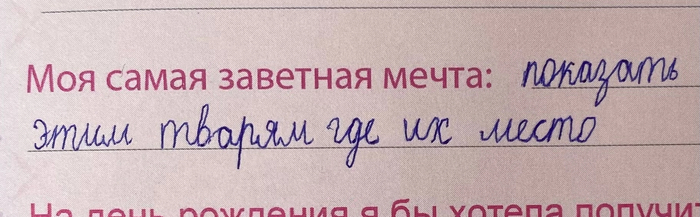 Моя самая заветная мечта: показать
этим тварям где их место
На день рождения я бы хотела получи